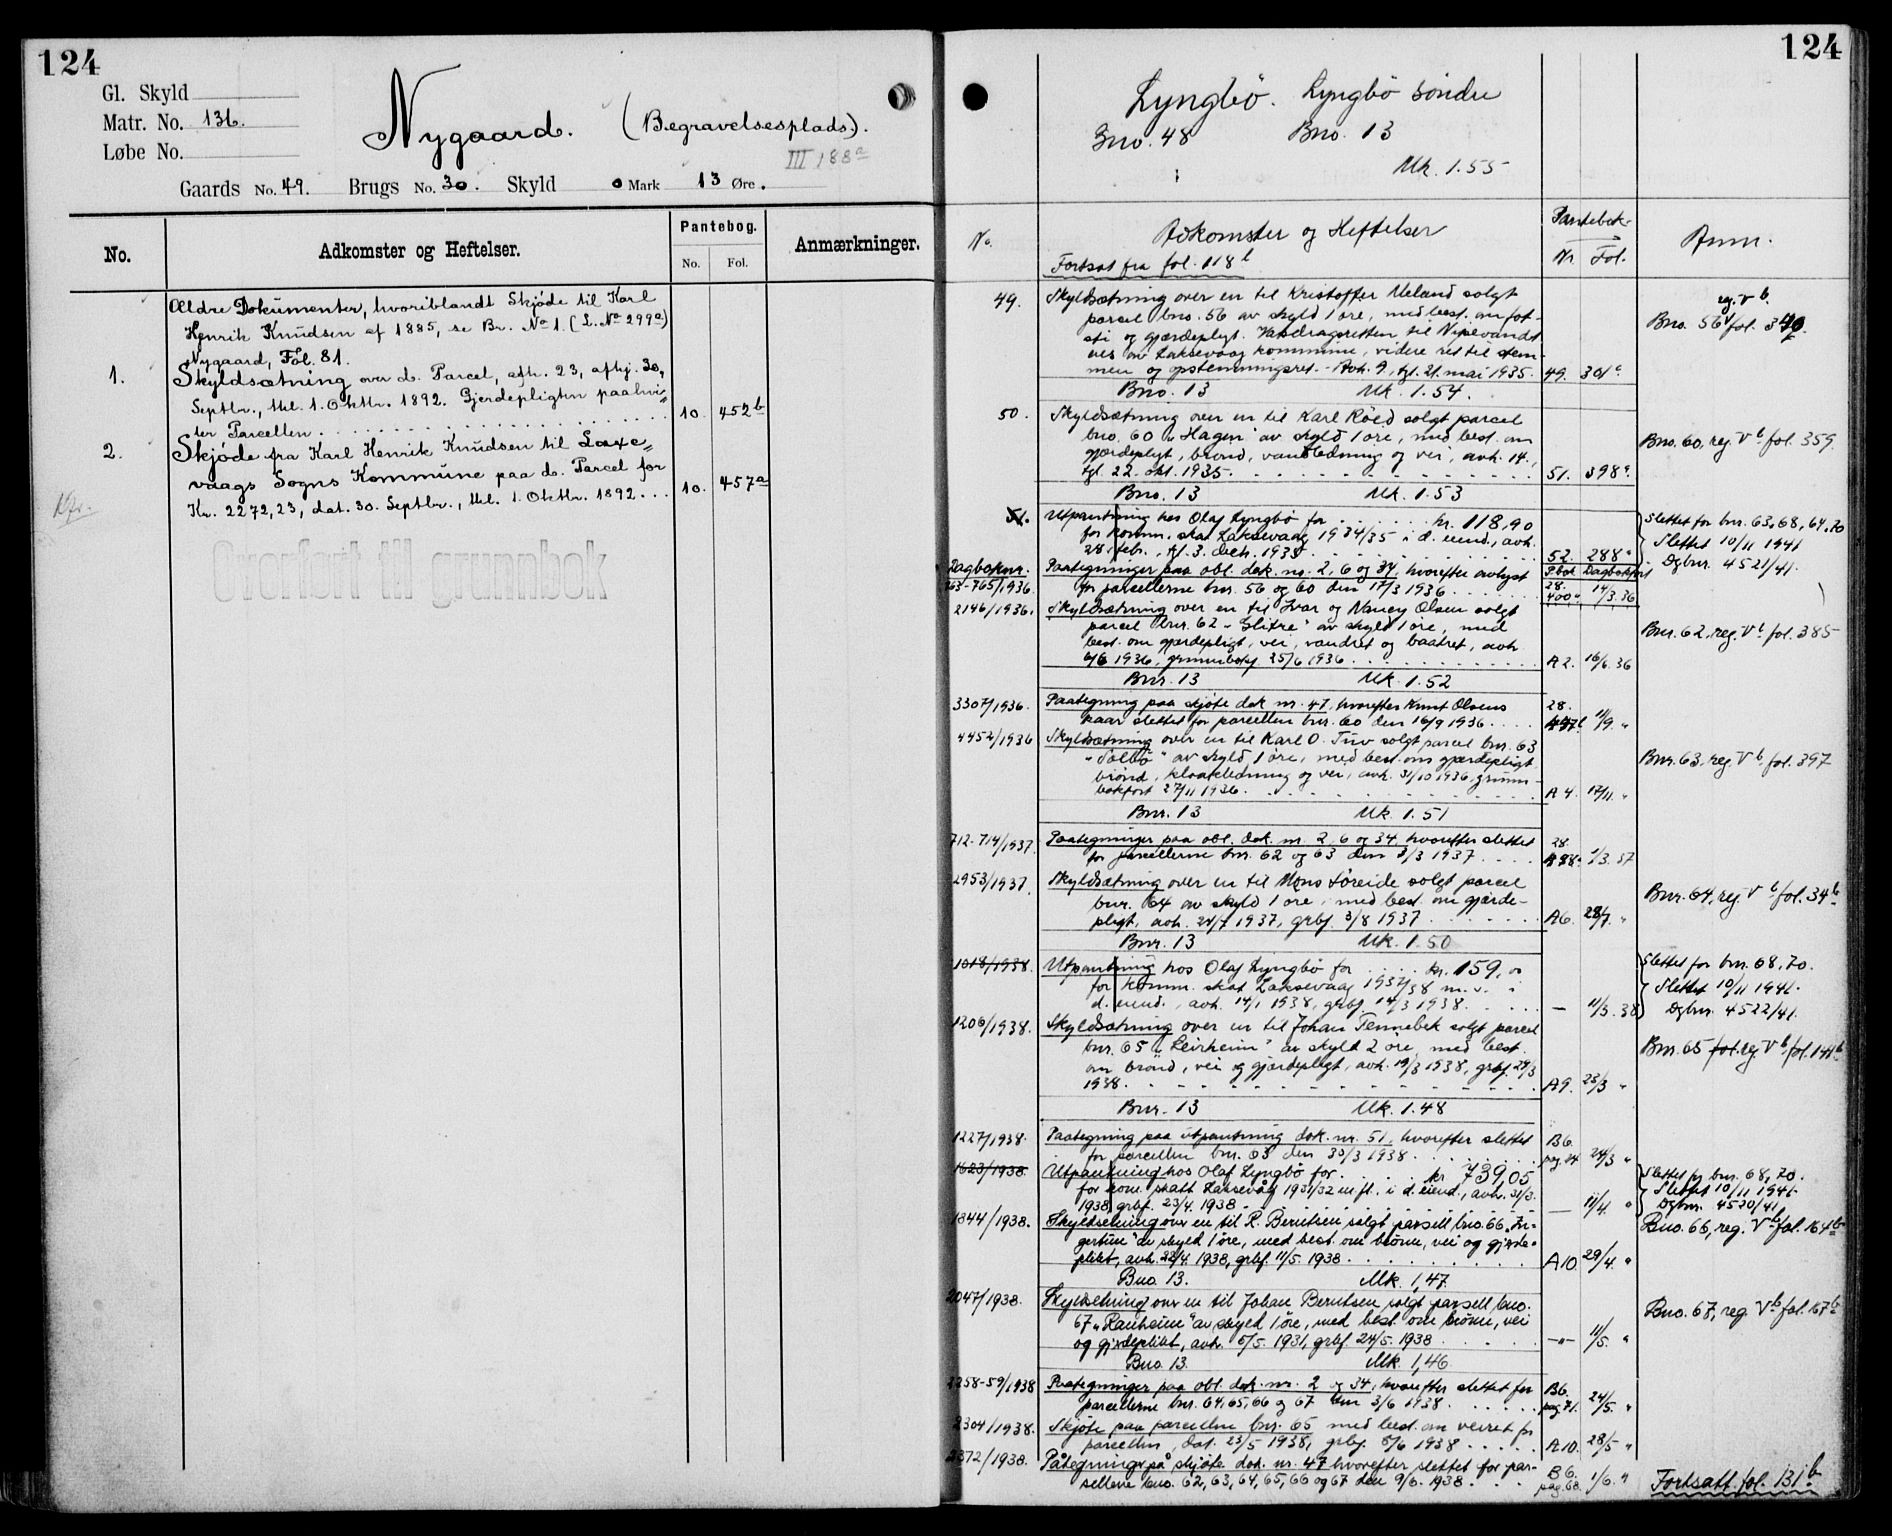 124
Gl. Skyld
Matr. No. 136.
Løbe No.
Nygaard. (Begravelsesplads).
III 188a
Gaards No. 49. Brugs No. 30. Skyld 0 Mark 13 Øre.
No.
Adkomster og Heftelser.
Pantebog.
No. Fol.
Anmærkninger.
Ældre Dokumenter, hvoriblandt Skjøde til Karl
Henrik Knudsen af 1885, se Br. No 1. (L. No 299a)
Nygaard, Fol. 81.
1. Skyldsætning over d. Parcel, afh. 23, afhj. 30,
Septbr., thl. 1. Oktbr. 1892. Gjerdepligten paahvi=
ler Parcellen . . . 10. 452b
2. Skjøde fra Karl Henrik Knudsen til Laxe=
vaags Sogns Kommune paa d. Parcel for
Kr. 2272,23, dat. 30. Septbr., thl. 1. Oktbr. 1892 . . . 10. 457a
Overført til grunnbok
124
Lyngbö. Lyngbö söndre
Gno. 48 Bno. 13
Mk. 1.55
No. Adkomster og Heftelser
Pantebok
Nr Fol.
Anm.
Fortsat fra fol. 118b
49. Skyldsætning over en til Kristoffer Meland solgt
parcel bno. 56 av skyld 1 öre, med best. om fot-
sti og gjærdepligt. Vasdragsretten til Nipevandt
eies av Laksevaag kommune, videre ret til stem-
men og opstemningsret. Avh. 9, tgl. 21. mai 1935. 49. 301a
Bno. 56 reg. Vb. fol. 340.
Bno. 13 Mk. 1.54.
50. Skyldsætning over en til Karl Röed solgt parcel
bno. 60 "Hagen" av skyld 1 öre, med best. om
gjærdepligt, brönd, vandledning og vei, avh. 14.,
tgl. 22. okt. 1935. . . . 51. 398a.
Bno. 60, reg. Vb fol. 359.
Bno. 13 Mk. 1.53
51. Utpantning hos Olaf Lyngbö for . . . kr. 118,90
for komm. skat Laksevaag 1934/35 i d. eiend., avh.
28. febr., tgl. 3. 1935 . . . 52. 288a
Slettet for bnr. 63, 68, 64, 70
Slettet 10/11 1941
Dgbnr. 4521/41.
Dagboknr.
763-765/1936. Paategninger paa obl. dok. no. 2, 6 og 34, hvorefter avlyst
for parcellerne bnr. 56 og 60 den 17/3 1936 . . .
P.bok Dagbokført
28. 400a. 14/3.36
2146/1936. Skyldsætning over en til Ivar og Nancy Olsen solgt
parcel bnr. 62 "Glitre" av skyld 1 öre, med
best. om gjærdepligt, vei, vandret og baatret, avh.
6/6 1936, grunnbokf. 25/6 1936 . . . A2. 16/6. 36
Bnr. 62, reg. Vb fol. 385
Bnr. 13 Mk. 1.52
3307/1936. Paategning paa skjöte dok nr. 47, hvorefter Knut Olsens
kaar slettet for parcellen bnr. 60 den 16/9 1936 . . . 28. 11/9 "
4452/1936 Skyldsætning over en til Karl O. Tuv solgt parcel bnr. 63
"Solbö" av skyld 1 öre, med best. om gjærdepligt
brönd, kloakledning og vei, avh. 31/10 1936, grunn-
bokført 27/11 1936 . . . A4. 17/11. "
Bnr. 63, reg. Vb. fol. 397
Bnr. 13 Mk. 1.51
712-714/1937. Paategninger paa obl. dok. nr. 2, 6 og 34, hvorefter slettet
for parcellerne bnr. 62 og 63 den 3/3 1937 . . . 28.
2953/1937. Skyldsætning over en til Mons Löreide solgt parcel
bnr. 64 av skyld 1 öre, med best. om gjærde-
pligt, avh. 24/7 1937, grbf. 3/8 1937 . . . A6. 28/7. "
Bnr. 64, reg. Vb fol. 34b
Bnr. 13 Mk. 1.50
1018/1938. Utpantning hos Olaf Lyngbö for . . . kr. 159,00
for komm. skat Laksevaag 1937/38 m. v. i
d. eiend., avh. 14/1 1938, grbf. 14/3 1938. . . . — 11/3. 38
Slettet for bnr. 68, 70.
Slettet 10/11 1941.
Dgbnr. 4522/41.
1206/1938. Skyldsætning over en til Johan Tennebek solgt parcel
bnr. 65 "Leirheim" av skyld 2 öre, med best.
om brönd, vei og gjærdepligt, avh. 19/3 1938, grbf. 29/3
1938. . . . A9. 23/3 "
Bnr. 65 fol. reg Vb fol. 144b
Bnr. 13 Mk. 1.48
1227/1938. Paategning paa utpantning dok. nr. 51, hvorefter slettet
for parcellen bnr. 63 den 30/3 1938 . . . B6. pag. 24 24/3 "
1623/1938. Utpantning hos Olaf Lyngbö for . . . kr 739,05
for kom. skatt Laksevåg 1931/32 m. fl. i d. eiend., avh. 31/3.
1938, grbf. 23/4. 1938 . . . — 11/4. "
Slettet for bnr. 68, 70.
Slettet 10/11 1941
Dgbnr. 4520/41
1844/1938. Skyldsetning over en til R. Berntsen solgt parsell bno. 66 "In-
gertun" av skyld 1 öre, med best. om brönn, vei og gjerde-
plikt, avh. 22/4. 1938, grbf. 11/5. 1938 . . . A10. 29/4. "
Bno. 66, reg. Vb fol. 164b
Bno 13. Mk. 1,47
2047/1938. Skyldsetning over en til Johan Berntsen solgt parsell bno.
67 "Ranheim" av skyld 1 öre, med best. om brönn, vei
og gjerdeplikt, avh. 5/5. 1931, grbf. 24/5. 1938 . . . —"— 11/5. "
Bno. 67, reg. Vb fol. 167b
Bno 13. Mk. 1,46
2258-59/1938 Paategninger paa obl. dok. nr. 2 og 34, hvorefter slettet for
parcellerne bnr. 64, 65, 66 og 67 den 3/6 1938. . . . B6. pag. 71. 24/5. "
2304/1938. Skjöte paa parcellen bnr. 65 med best. om veiret for
parcellen, dat. 23/5 1938, grbf. 8/6 1938 . . . A10. 28/5 "
2372/1938. Påtegninger på skjöte dok. nr. 47 hvorefter slettet for par-
sellene bno. 62, 63, 64, 65, 66 og 67 den 9/6. 1938. . . . B6. pag. 68. 1/6. "
Fortsatt fol. 131b